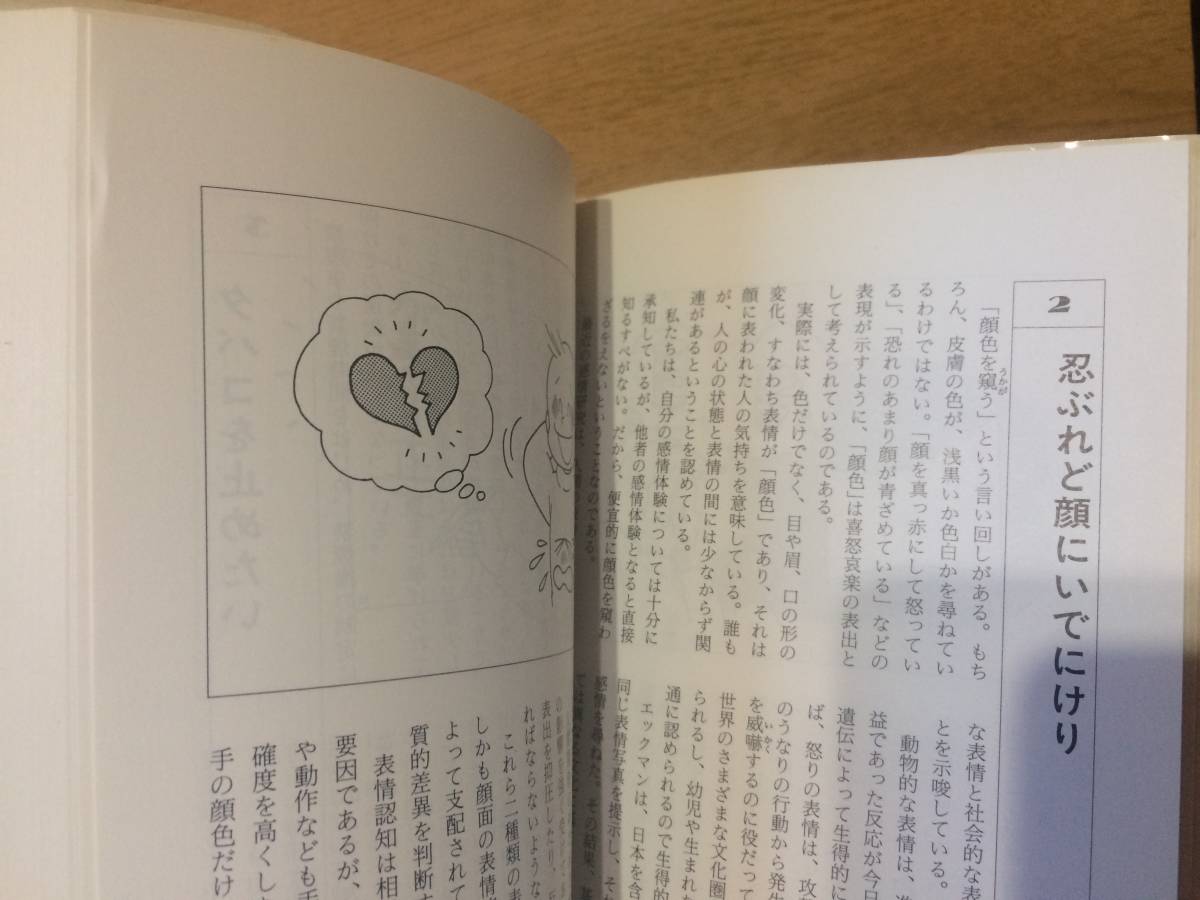 2
忍ぶれど顔にいでにけり
「顔色を窺う」という言い回しがある。もち
うかが
ろん、皮膚の色が、浅黒いか色白かを尋ねてい
るわけではない。「顔を真っ赤にして怒ってい
る」、「恐れのあまり顔が青ざめている」などの
表現が示すように、「顔色」は喜怒哀楽の表出と
して考えられているのである。
実際には、色だけでなく、目や眉、口の形の
変化、すなわち表情が「顔色」であり、それは
顔に表われた人の気持ちを意味している。誰も
が、人の心の状態と表情の間には少なからず関
連があるということを認めている。
私たちは、自分の感情体験については十分に
承知しているが、他者の感情体験となると直接
知るすべがない。だから、便宜的に顔色を窺わ
ざるをえないということなのである。
な表情と社会的な表
とを示唆している。
動物的な表情は、進
益であった反応が今日
遺伝によって生得的に
ば、怒りの表情は、攻
のうなりの行動から発生
を威嚇するのに役だって
いかく
世界のさまざまな文化圏
られるし、幼児や生まれた
通に認められるので生得的
エックマンは、日本を含
同じ表情写真を提示し、それ
感情を尋ねた。その結果、基
表出を抑圧したり、
ればならないような
これら二種類の表
しかも顔面の表情
よって支配されて
質的差異を判断す
表情認知は相
要因であるが、
や動作なども手
確度を高くし
手の顔色だけ